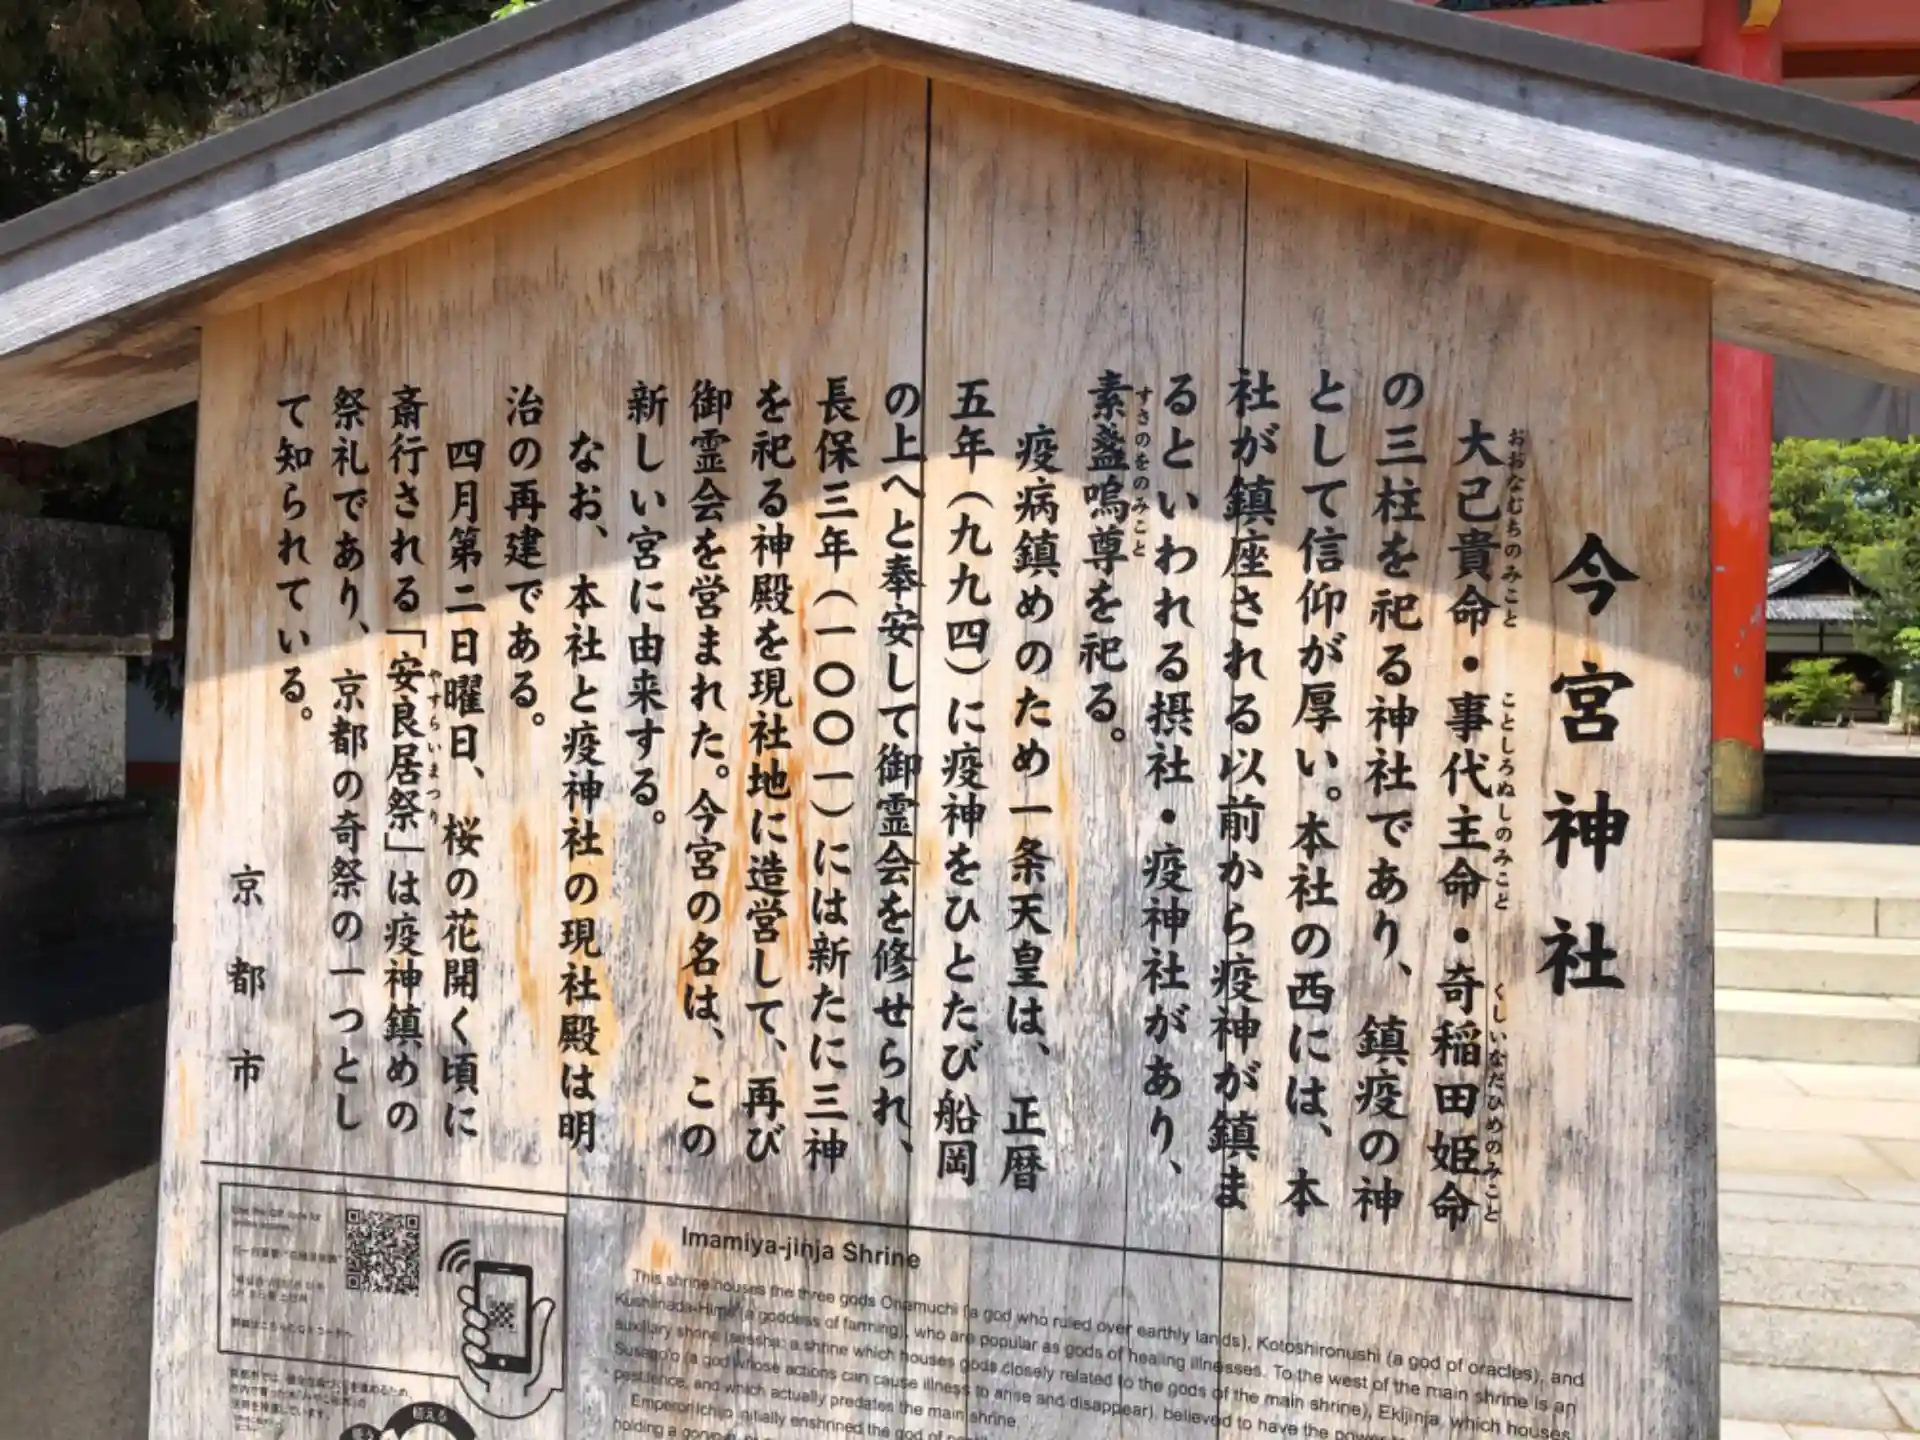 今宮神社
大己貴命・事代主命・奇稲田姫命
おおなむちのみこと ことしろぬしのみこと くしいなだひめのみこと
の三柱を祀る神社であり、鎮疫の神
として信仰が厚い。本社の西には、本
社が鎮座される以前から疫神が鎮ま
るといわれる摂社・疫神社があり、
素盞嗚尊を祀る。
すさのをのみこと
疫病鎮めのため一条天皇は、正暦
五年(九九四)に疫神をひとたび船岡
の上へと奉安して御霊会を修せられ、
長保三年(一〇〇一)には新たに三神
を祀る神殿を現社地に造営して、再び
御霊会を営まれた。今宮の名は、この
新しい宮に由来する。
なお、本社と疫神社の現社殿は明
治の再建である。
四月第二日曜日、桜の花開く頃に
斎行される「安良居祭」は疫神鎮めの
やすらいまつり
祭礼であり、京都の奇祭の一つとし
て知られている。
京都市
Imamiya-jinja Shrine
This shrine houses the three gods Onamuchi (a god who ruled over earthly lands), Kotoshironushi (a god of oracles), and
Kushiinada-Hime (a goddess of farming), who are popular as gods of healing illnesses. To the west of the main shrine is an
auxiliary shrine (sessha: a shrine which houses gods closely related to the gods of the main shrine), Ekijinja, which houses
Susano'o (a god whose actions can cause illness to arise and disappear), believed to have the power
pestilence, and which actually predates the main shrine.
Emperor Ichijo initially enshrined the god of
holding a